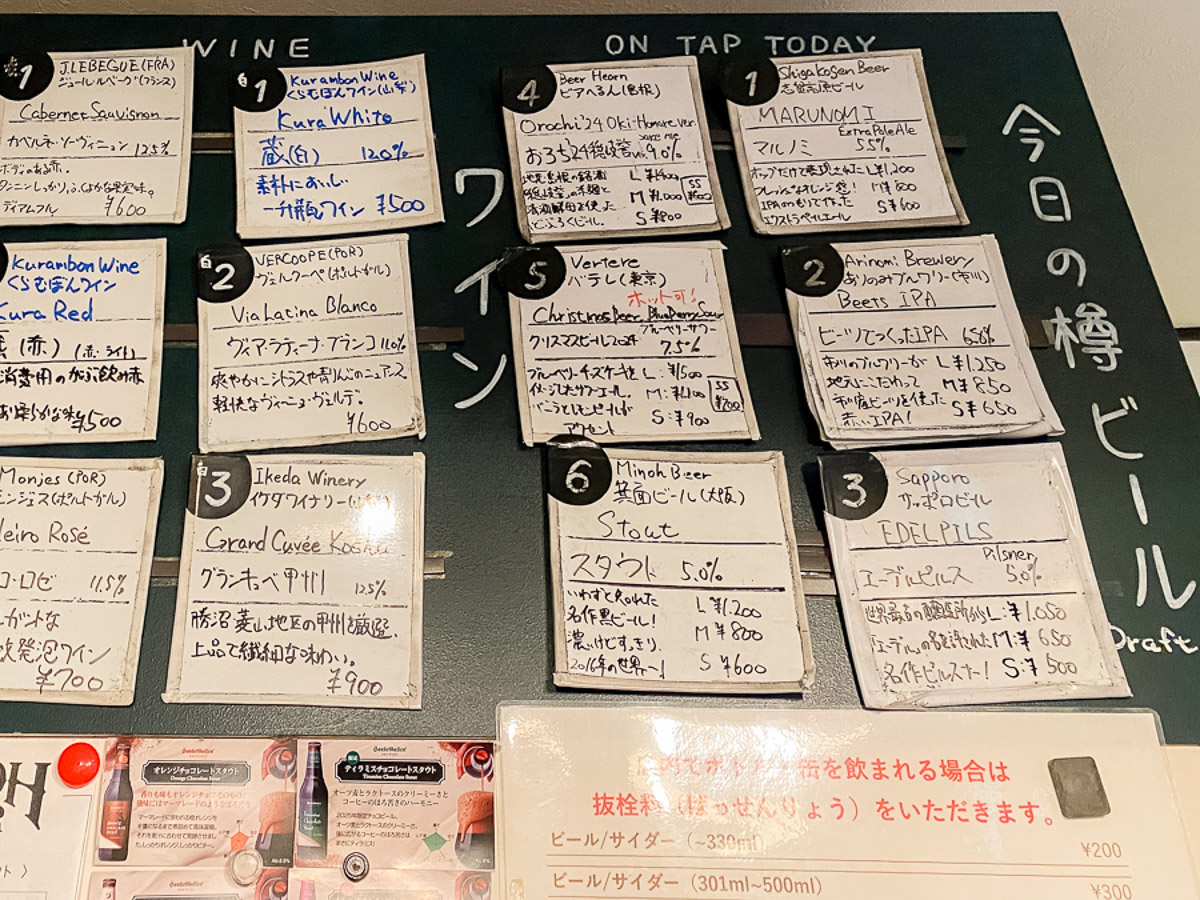 WINE
ON TAP TODAY
今日の樽ビール
Draft
ワイン
1
J.LEBEGUE(FRA)
ジュール・ルベーグ(フランス)
Cabernet Sauvignon
カベルネ・ソーヴィニョン 12.5%
ボディのある赤。
タンニンしっかり、ふくよかな果実味。
ディアムフル
¥600
白1
Kurambon Wine
くらむぼんワイン(山梨)
Kura White
蔵(白) 12.0%
素朴においしい
一升瓶ワイン ¥500
Kurambon Wine
くらむぼんワイン
Kura Red
(赤) (赤・ライト)
消費用のがぶ飲み赤
¥500
白2
VERCOOPE(POR)
ヴェルクーペ(ポルトガル)
Via Latina Blanco
ヴィア・ラティーナ・ブランコ 11.0%
爽やかにシトラスや青りんごのニュアンス。
軽快なヴィーニョ・ヴェルデ。
¥600
Monjes (POR)
ンジェス(ポルトガル)
leiro Rosé
コ・ロゼ 11.5%
ガントな
発泡ワイン
¥700
白3
Ikeda Winery
イケダワイナリー
Grand Cuvée Koshu
グランキュベ甲州 12.5%
勝沼菱山地区の甲州を厳選。
上品で繊細な味わい。
¥900
4
Beer Hearn
ビアへるん(島根)
Orochi'24 Oki-Homare ver.
sake ale
おろち'24隠岐誉ver. 9.0%
地元島根の銘酒
「隠岐誉」の米麹と
清酒酵母を使った
どぶろくビール。
L ¥1,400
M ¥1,000
S ¥800
SS ¥600
1
Shigakogen Beer
志賀高原ビール
MARUNOMI
Extra Pale Ale
マルノミ 5.5%
ホップだけで表現された L ¥1,200
フレッシュなオレンジ感! M ¥800
IPAのもりで作った S ¥600
エクストラペイルエール
5
Vertere
バテレ(東京)
ホット可!
Christmas Beer Blueberry Sour
ブルーベリーサワー
クリスマスビール2024 7.5%
ブルーベリーチーズケーキを L: ¥1,500
イメージしたサワーエール。 M: ¥1,100
バニラとレモンピールが S: ¥900
アクセント
SS ¥700
2
Arinomi Brewery
ありのみブルワリー(市川)
Beets IPA
ビーツでつくったIPA 6.5%
市川のブルワリーが L ¥1,250
地元にこだわって M ¥850
市川産ビーツを使った S ¥650
赤いIPA!
6
Minoh Beer
箕面ビール(大阪)
Stout
スタウト 5.0%
いわずと知れた L ¥1,200
名作黒ビール! M ¥800
濃いけどすっきり。 S ¥600
2016年の世界一!
3
Sapporo
サッポロビール
EDELPILS
Pilsner
エーデルピルス 5.0%
世界最古の醸造所から L: ¥1,050
「エーデル」の名を許された M: ¥650
名作ピルスナー! S: ¥500
Sankt Gallen
オレンジチョコレートスタウト
Orange Chocolate Stout
香りも味もオレンジチョコそのもの!
Sankt Gallen
ティラミスチョコレートスタウト
Tiramisu Chocolate Stout
オーツ麦とラクトースのクリーミーさと
コーヒーのほろ苦さのハーモニー
店内でボトル 缶を飲まれる場合は
抜栓料(ばっせんりょう)をいただきます。
ビール/サイダー(~330ml) ¥200
ビール/サイダー(301ml~500ml) ¥300